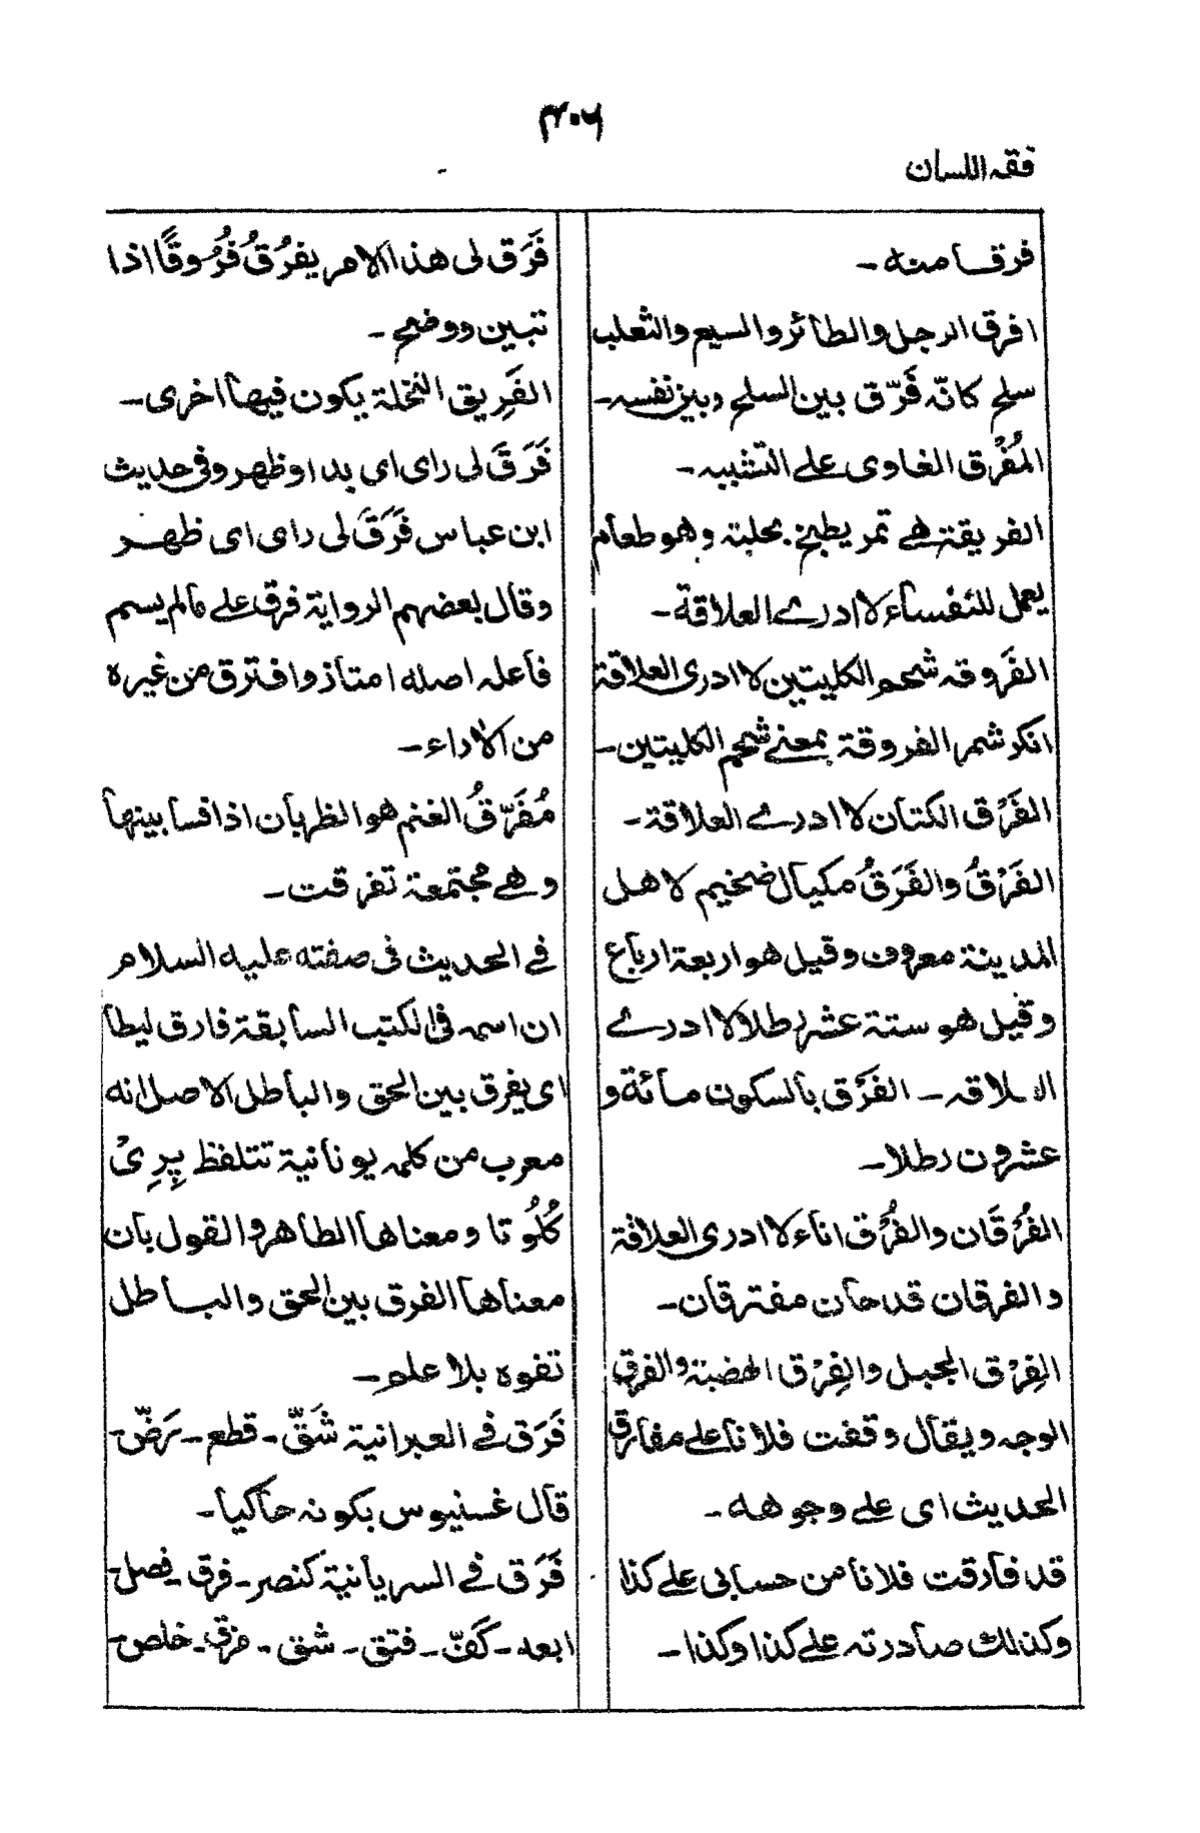 ۳۰۶
فقہ اللسان
فرقا منہ ـ
افرق الرجل والطائر والسبع والثعلب
سلح کانّہ فَرّق بین السلح وبین نفسہ ـ
المُفْرق الغاوی علے التشبیہ ـ
الفریقۃ ھے تمر یطبخ بحلبۃ وھو طعام
یعمل للنفساء لا ادرے العلاقۃ ـ
الفَروقہ شحم الکلیتین لا ادری العلاقۃ
انکر شمر الفروقۃ بمعنے شحم الکلیتین ـ
الفَرْق الکتان لا ادرے العلاقۃ ـ
الفَرْقُ والفَرَقُ مکیال ضخیم لاھل
المدینۃ معروف وقیل ھو اربعۃ ارباع
وقیل ھو ستۃ عشر رطلا لا ادرے
العلاقہ ـ الفَرْق بالسکون مائۃ و
عشرون رطلا ـ
الفُرْقَان والفُرْق اناء لا ادری العلاقۃ
والفرقان قدحان مفترقان ـ
الفِرْق الجبل والفِرْق الھضبۃ والفرق
الوجہ ویقال وقفت فلانا علے مفارق
الحدیث ای علے وجوھہ ـ
قد فارقت فلانا من حسابی علے کذا
وکذلک صادرتہ علے کذا وکذا ـ
فَرَق لی ھذا الامر یفرُقُ فُرُوقًا اذا
تبین ووضح ـ
الفَرِیق النخلۃ یکون فیھا اخری ـ
فَرَقَ لی رای ای بدا وظھر وفی حدیث
ابن عباس فَرَقَ لی رای ای ظھر
وقال بعضھم الروایۃ فرق علے مالم یسم
فاعلہ اصلہ امتاز وافترق من غیرہ
من الاراء ـ
مُفَرّقُ الغنم ھو الظربان اذا فسا بینھا
وھے مجتمعۃ تفرقت ـ
فے الحدیث فی صفتہ علیہ السلام
ان اسمہ فی الکتب السابقۃ فارق لیطا
ای یفرق بین الحق والباطل الاصل انہ
معرب من کلمہ یونانیۃ تتلفظ پِرِیْ
کُلُوتا ومعناھا الطاھر والقول بان
معناھا الفرق بین الحق والباطل
تفوہ بلا علم ـ
فَرَق فے العبرانیۃ شَقّ ـ قطع ـ رَضّ ـ
قال غسنیوس بکونہ حاکیا ـ
فَرَق فے السریانیۃ کنصر ـ فرق ـ فصل ـ
ابعہ ـ کَفّ ـ فتق ـ شق ـ مزق ـ خلص ـ